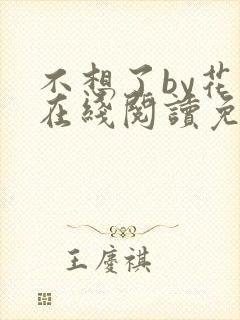 不想了by花
在线閱讀免
王慶祺